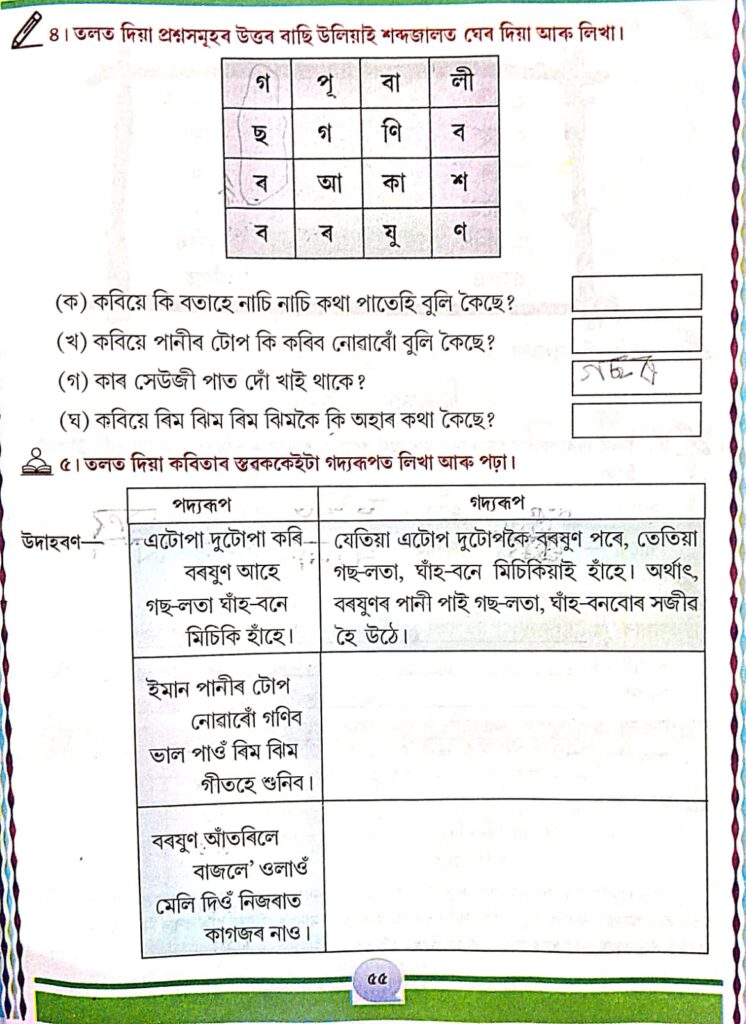 ৪। তলত দিয়া প্ৰশ্নসমূহৰ উত্তৰ বাছি উলিয়াই শব্দজালত ঘেৰ দিয়া আৰু লিখা।
গ পূ বা লী
ছ গ ণি ব
ৰ আ কা শ
ব ৰ ষু ণ
(ক) কবিয়ে কি বতাহে নাচি নাচি কথা পাতেহি বুলি কৈছে?
(খ) কবিয়ে পানীৰ টোপ কি কৰিব নোৱাৰোঁ বুলি কৈছে?
(গ) কাৰ সেউজী পাত দোঁ খাই থাকে? গছৰ
(ঘ) কবিয়ে ৰিম ঝিম ৰিম ঝিমকৈ কি অহাৰ কথা কৈছে?
৫। তলত দিয়া কবিতাৰ স্তৱককেইটা গদ্যৰূপত লিখা আৰু পঢ়া।
পদ্যৰূপ গদ্যৰূপ
উদাহৰণ—
এটোপা দুটোপা কৰি
বৰষুণ আহে
গছ-লতা ঘাঁহ-বনে
মিচিকি হাঁহে।
যেতিয়া এটোপ দুটোপকৈ বৰষুণ পৰে, তেতিয়া
গছ-লতা, ঘাঁহ-বনে মিচিকিয়াই হাঁহে। অৰ্থাৎ,
বৰষুণৰ পানী পাই গছ-লতা, ঘাঁহ-বনবোৰ সজীৱ
হৈ উঠে।
ইমান পানীৰ টোপ
নোৱাৰোঁ গণিব
ভাল পাওঁ ৰিম ঝিম
গীতহে শুনিব।
বৰষুণ আঁতৰিলে
বাজলে’ ওলাওঁ
মেলি দিওঁ নিজৰাত
কাগজৰ নাও।
৫৫